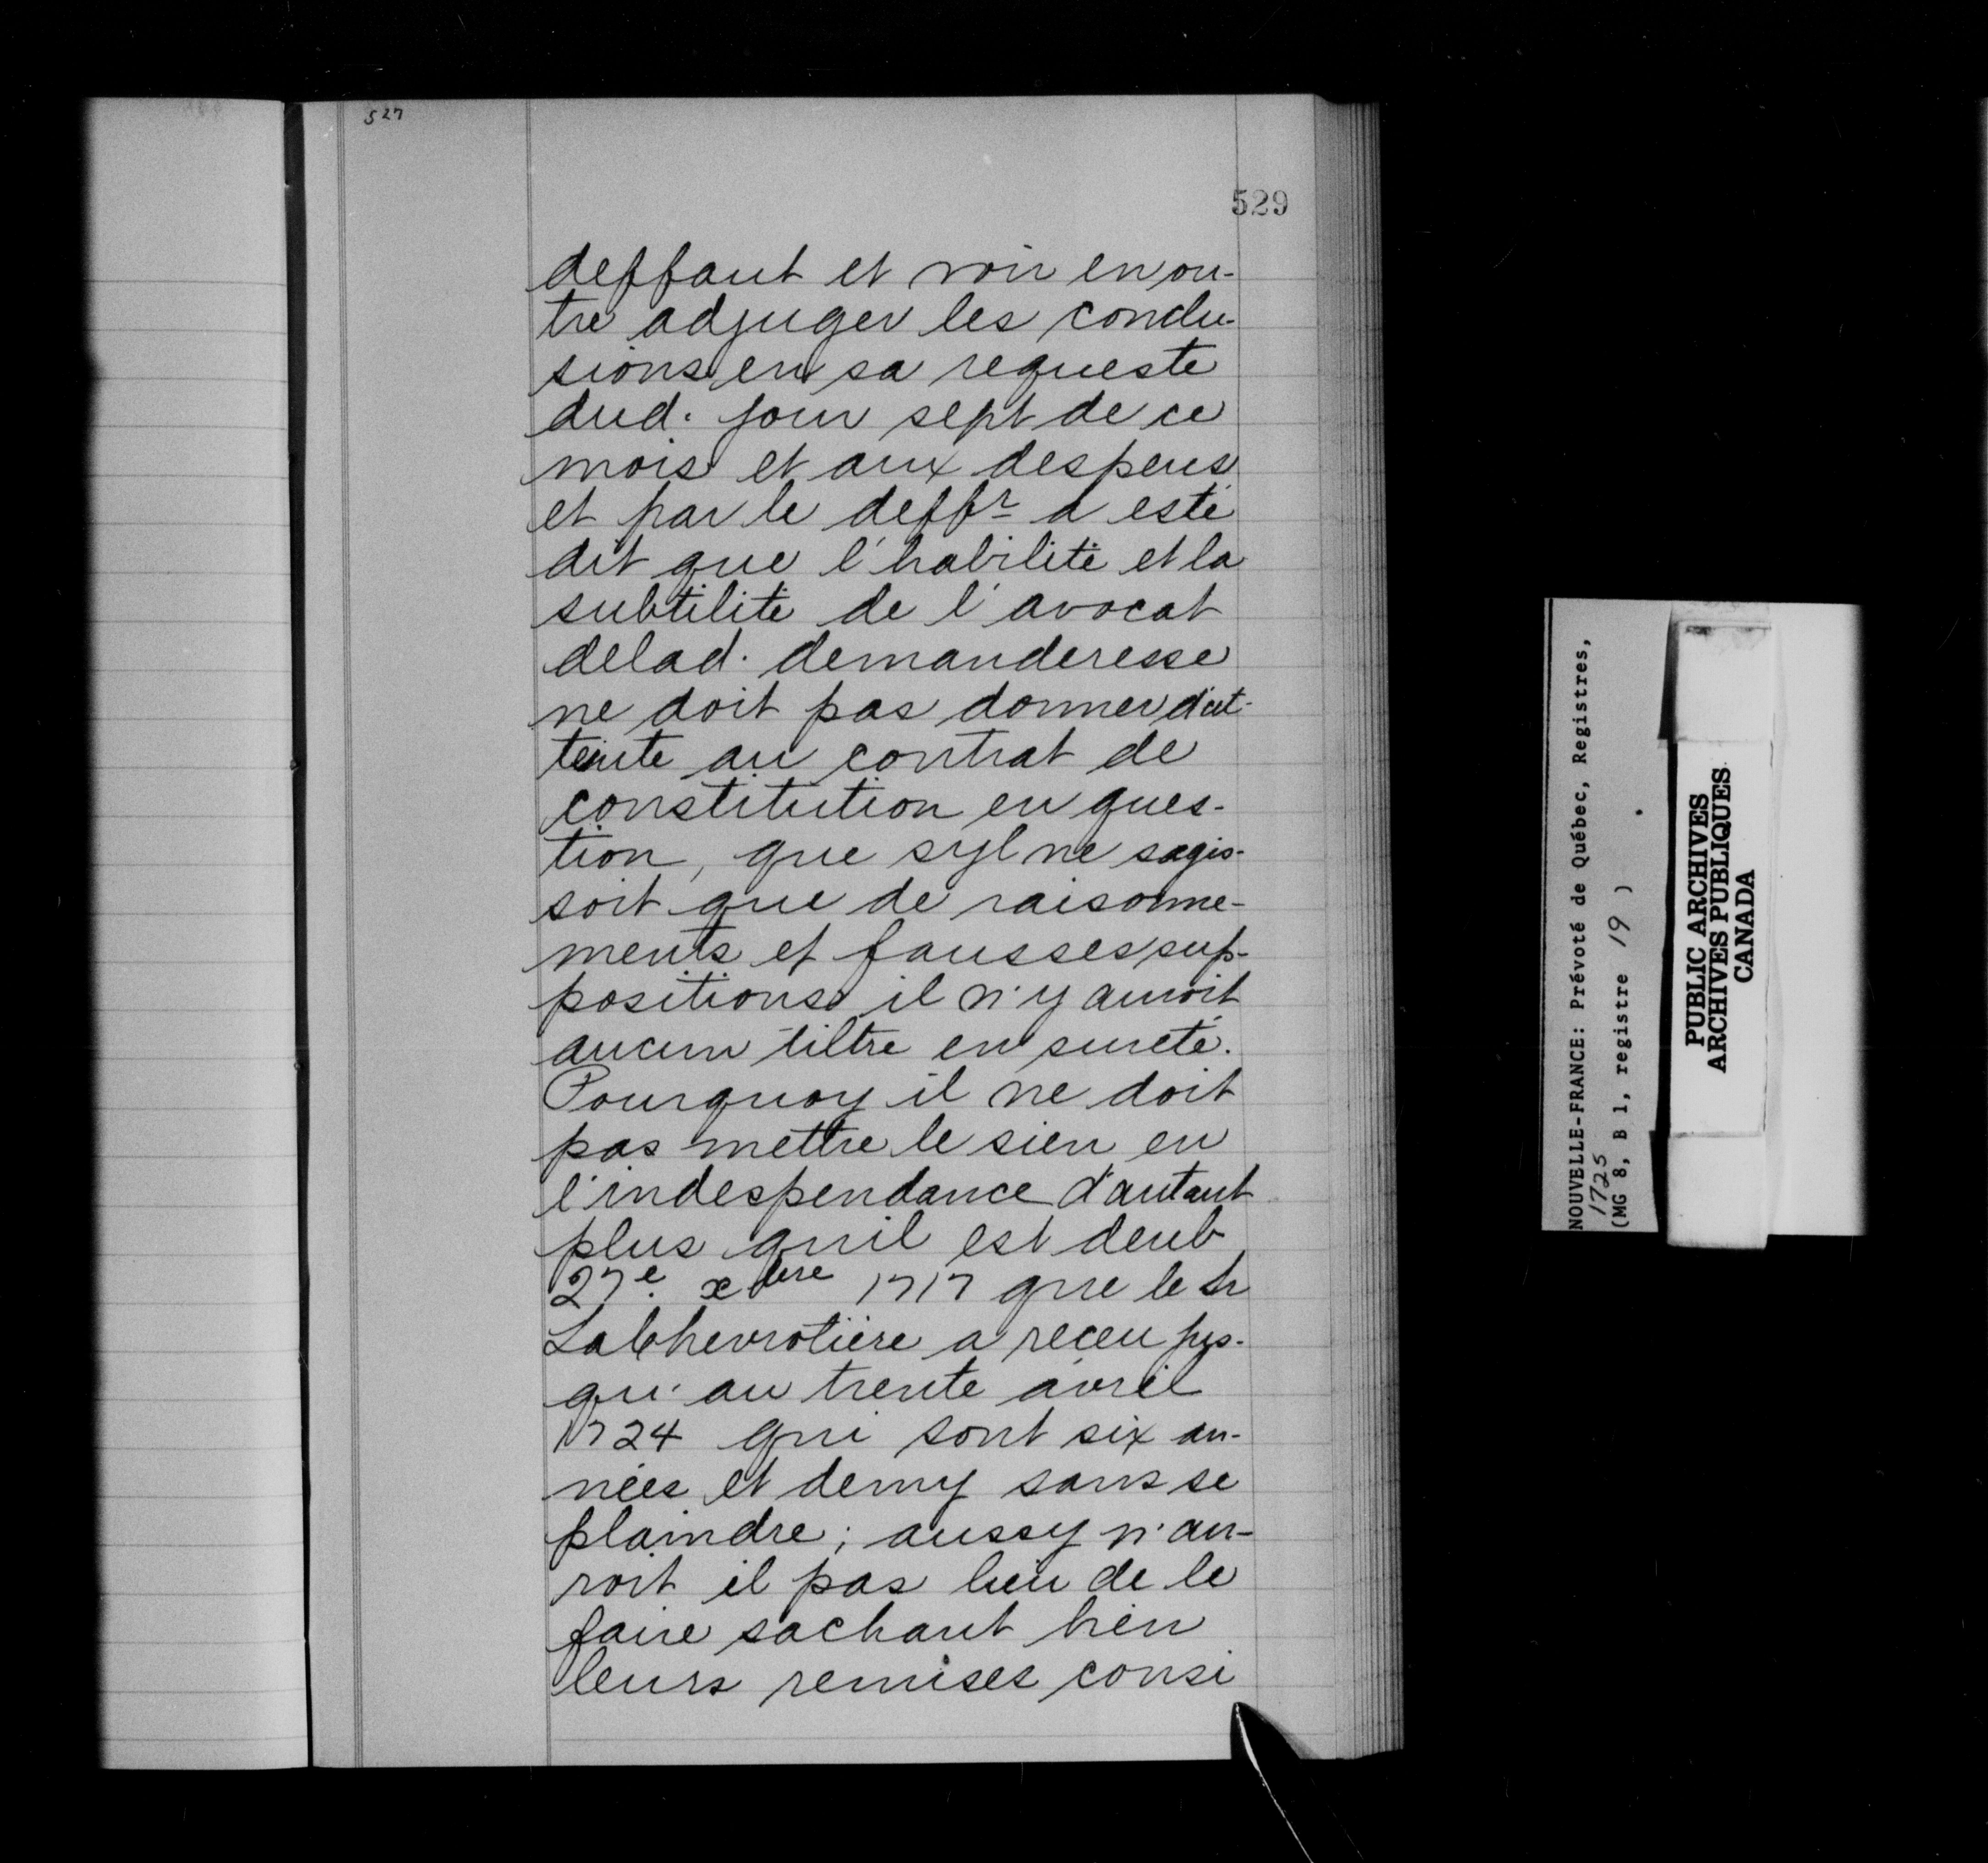 527
529
deffaut et voir en ou-
tre adjuger les conclu-
sions en sa requeste
dud. jour sept de ce
mois et aux despens
et par le deffr a esté
dit que l'habilité et la
subtilité de l'avocat
delad. demanderesse
ne doit pas donner d'at-
teinte au contrat de
constitution en ques-
tion, que syl ne sagis-
soit que de raisonne-
ments et fausses sup-
positions il n'y auroit
aucun tiltre en sureté.
Pourquoy il ne doit
pas mettre le sien en
l'indespendance d'autant
plus quil est deub
27e. xbre 1717 que le Sr
LaChevrotière a receu jus-
qu'au trente avril
1724 qui sont six an-
nées et demy sans se
plaindre; aussy n'au-
roit il pas lieu de le
faire sachant bien
leurs remises consi
NOUVELLE-FRANCE: Prévoté de Québec, Registres,
1725
(MG 8, B 1, registre 19 )
PUBLIC ARCHIVES
ARCHIVES PUBLIQUES
CANADA